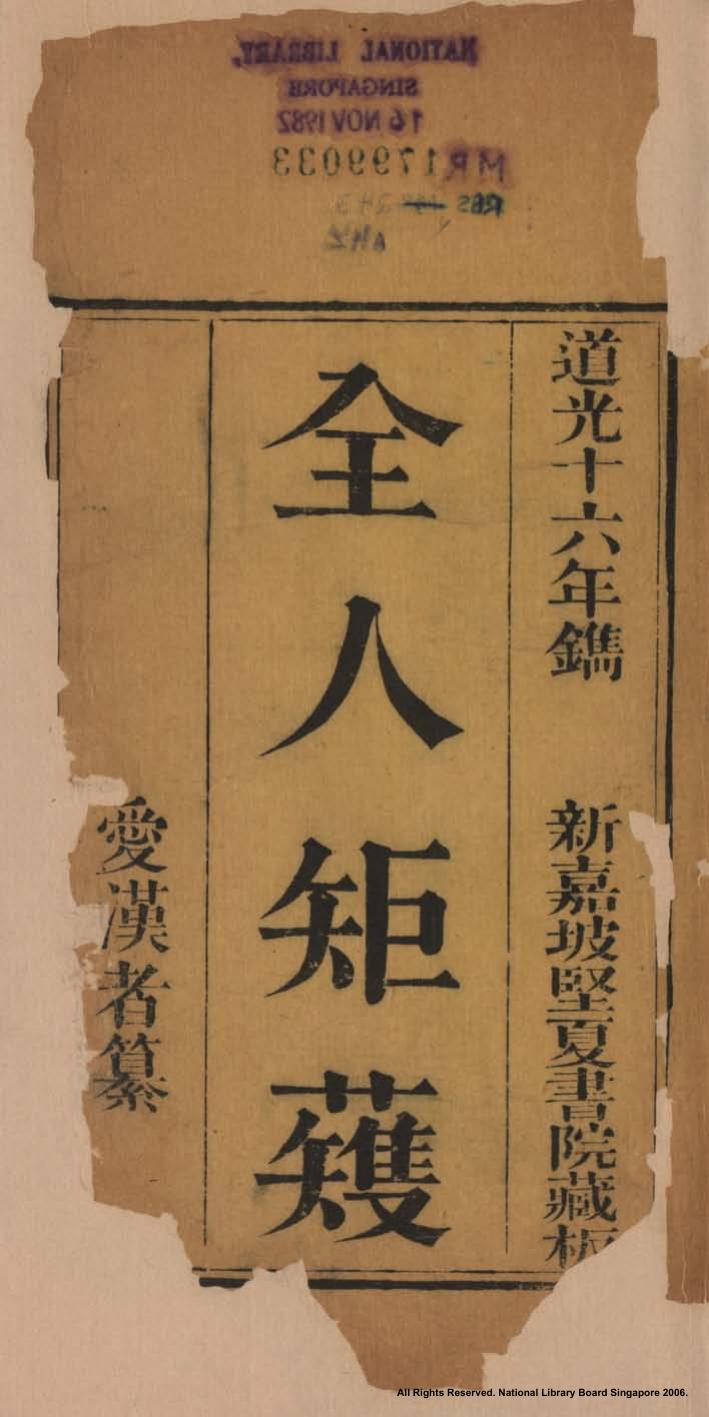 NATIONAL LIBRARY,
SINGAPORE
16 NOV 1982
MR1799033
RBS
道光十六年鐫
新嘉坡堅夏書院藏板
全人矩矱
愛漢者纂
All Rights Reserved. National Library Board Singapore 2006.